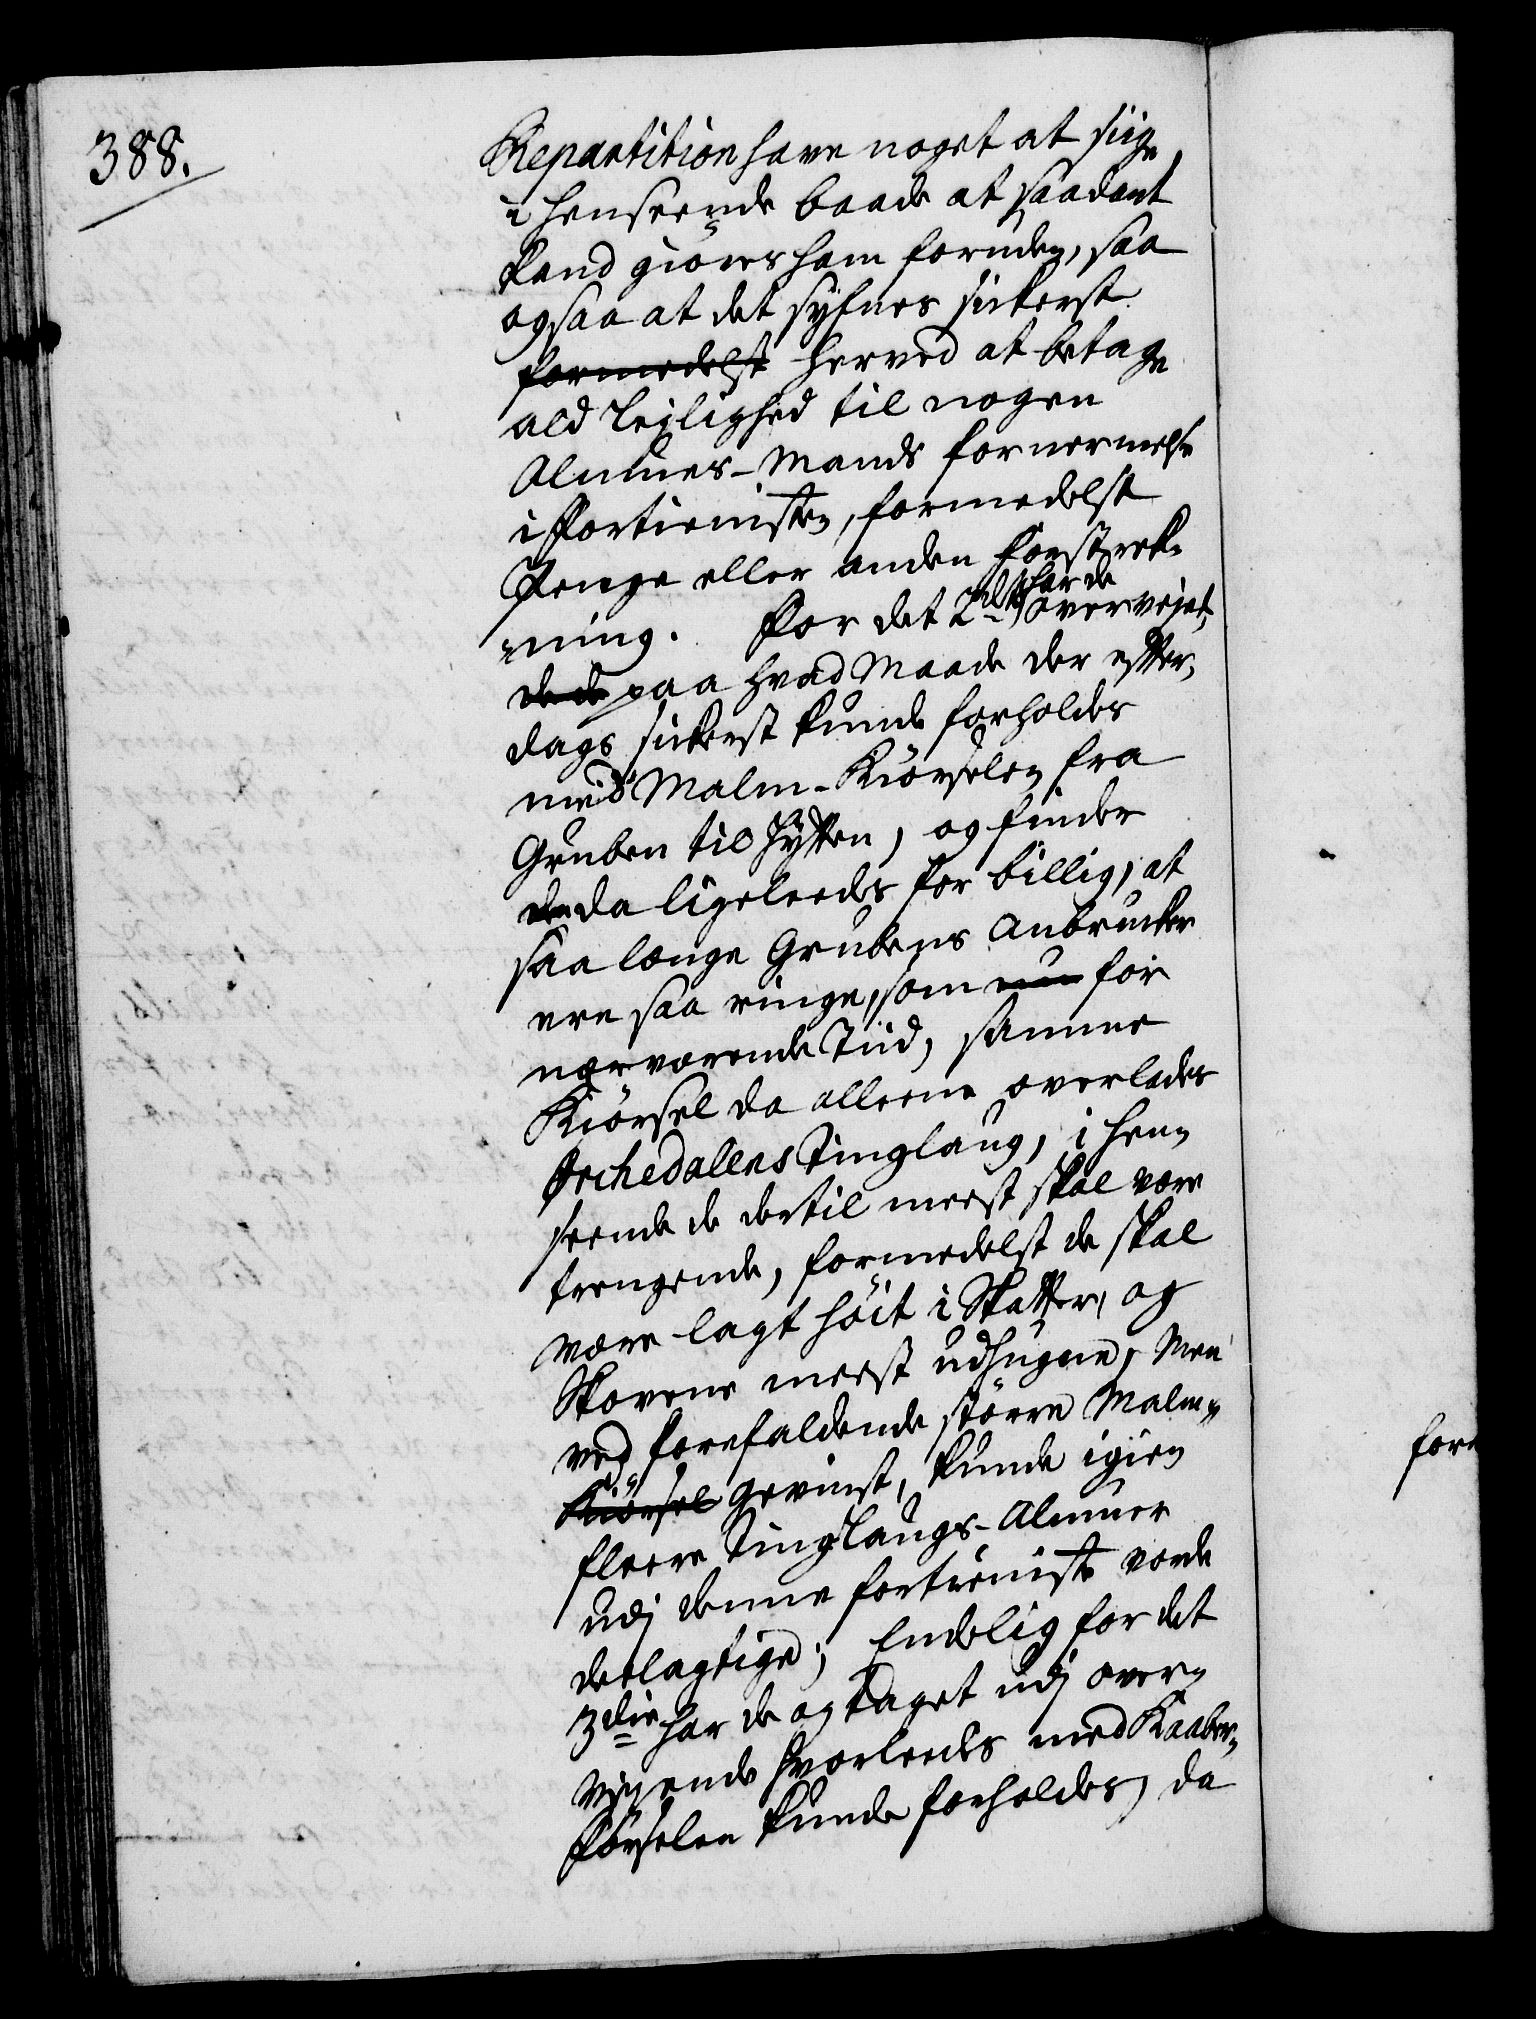 388.
Repartition have noget at siige
i henseende baade at saadant
kand giöres ham foruden, saa
ogsaa at det syfnes sickerst
formedelst herved at betage
ald Leilighed til nogen
Almues-Mands fornermelse
i Fortienisten, formedelst
Penge eller anden Forstrek-
ning. For det 2det har de overvejet,
de de paa hvad Maade der efter-
dags sickerst kunde forholdes
med Malm-Kiörselen fra
Gruben til Hytten, og finder
de da ligeleedes for billig, at
saa længe Grubens Anbrucher
ere saa ringe, som nu for
nærværende Tiid, samme
Kiörsel da alleene overlades
Orchedalens Tinglaug, i hen-
seende de dertil meest skal være
trengende, formedelst de skal
være lagt höit i Skatter, og
Skovene meest udhugne, Men
ved forefaldende större Malm-
Kiörsel Gevinst, kunde igien
fleere Tinglaugs-Almuer
udj denne fortieniste vorde
deelagtige; Endelig for det
3die har de og taget udj over-
vejende hvorleedes med Kaaber-
förselen kunde forholdes, da